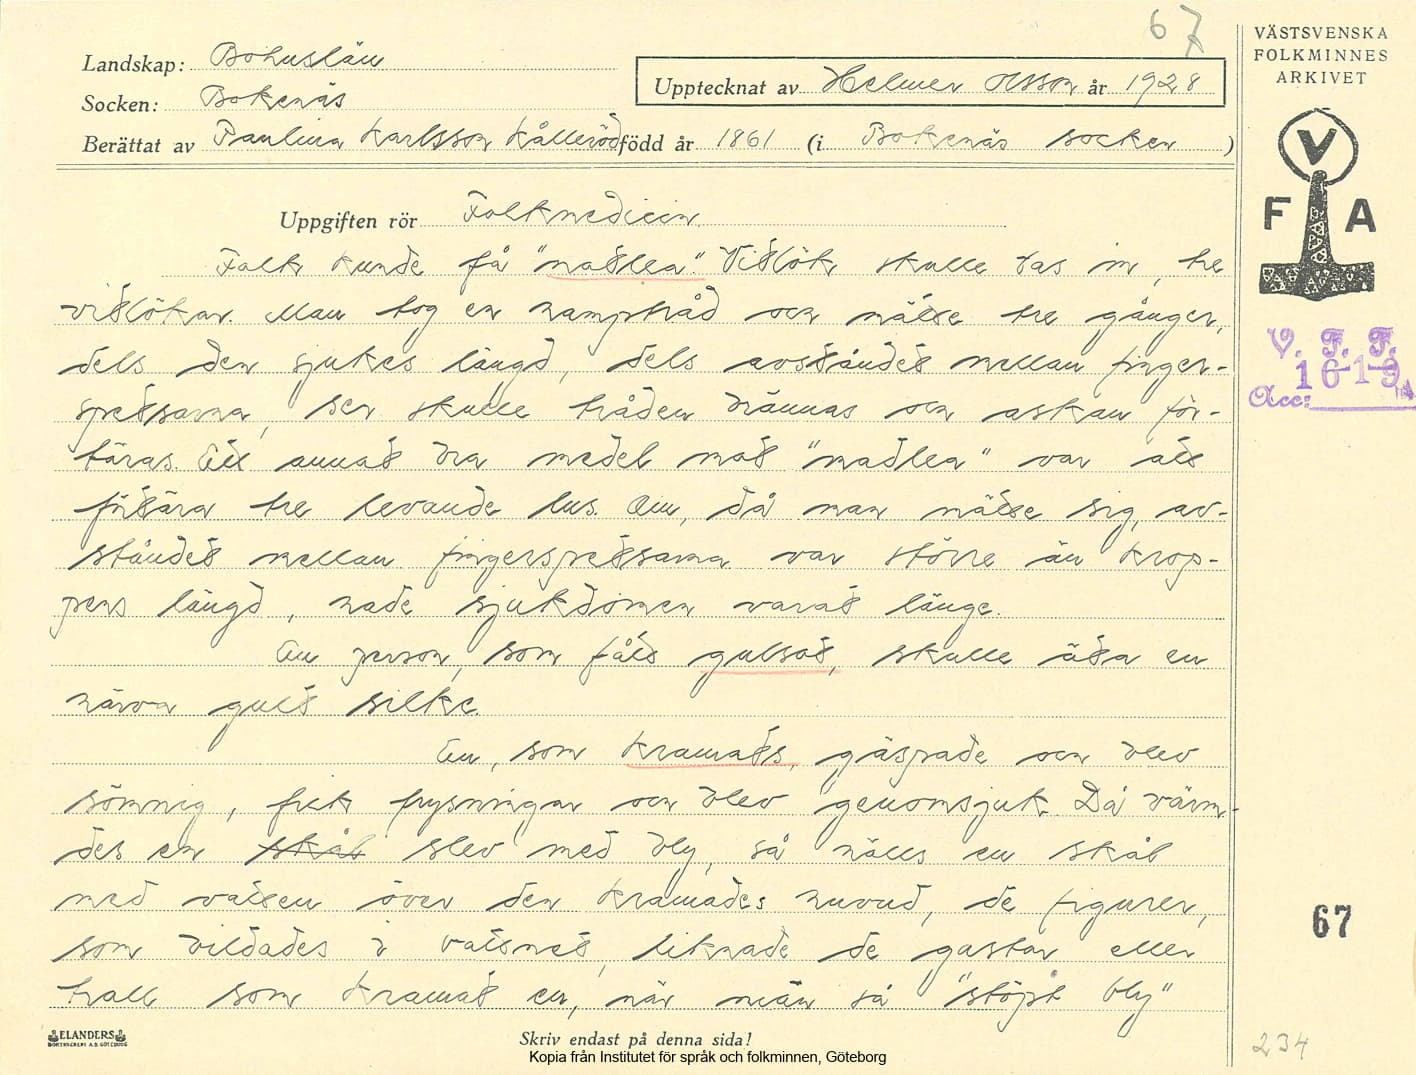 67
Landskap: Bohuslän
Socken: Bokenäs
Upptecknat av Helmer Olsson år 1928
Berättat av Paulina Karlsson Kålleröd född år 1861 (i Bokenäs socken)
VÄSTSVENSKA
FOLKMINNES
ARKIVET
V
F A
V. F. F.
1619
Acc:
Uppgiften rör Folkmedicin.
Folk kunde få "naslea". Vitlök skulle tas in, tre
vitlökar. Man tog en hamptråd och mätte tre gånger,
dels den sjukes längd, dels avståndet mellan finger-
spetsarna, sen skulle tråden brännas och askan för-
täras. Ett annat bra medel mot "madlea" var att
förtära tre levande lus. Om, då man mätte sig, av-
ståndet mellan fingerspetsarna var större än krop-
pens längd, hade sjukdomen varat länge.
En person, som fått gulsot, skulle äta en
härva gult silke.
En, som kramats, gäspade och blev
sömnig, fick frysningar och blev genomsjuk. Då värm-
des en skål slev med bly, så hälls en skål
med vatten över den kramades huvud, de figurer,
som bildades i vattnet, liknade de gastar eller
troll som kramat en, när män så "stöpt bly"
67
234
ELANDERS
BOKTRYCKERI A.B. GÖTEBORG
Skriv endast på denna sida!
Kopia från Institutet för språk och folkminnen, Göteborg